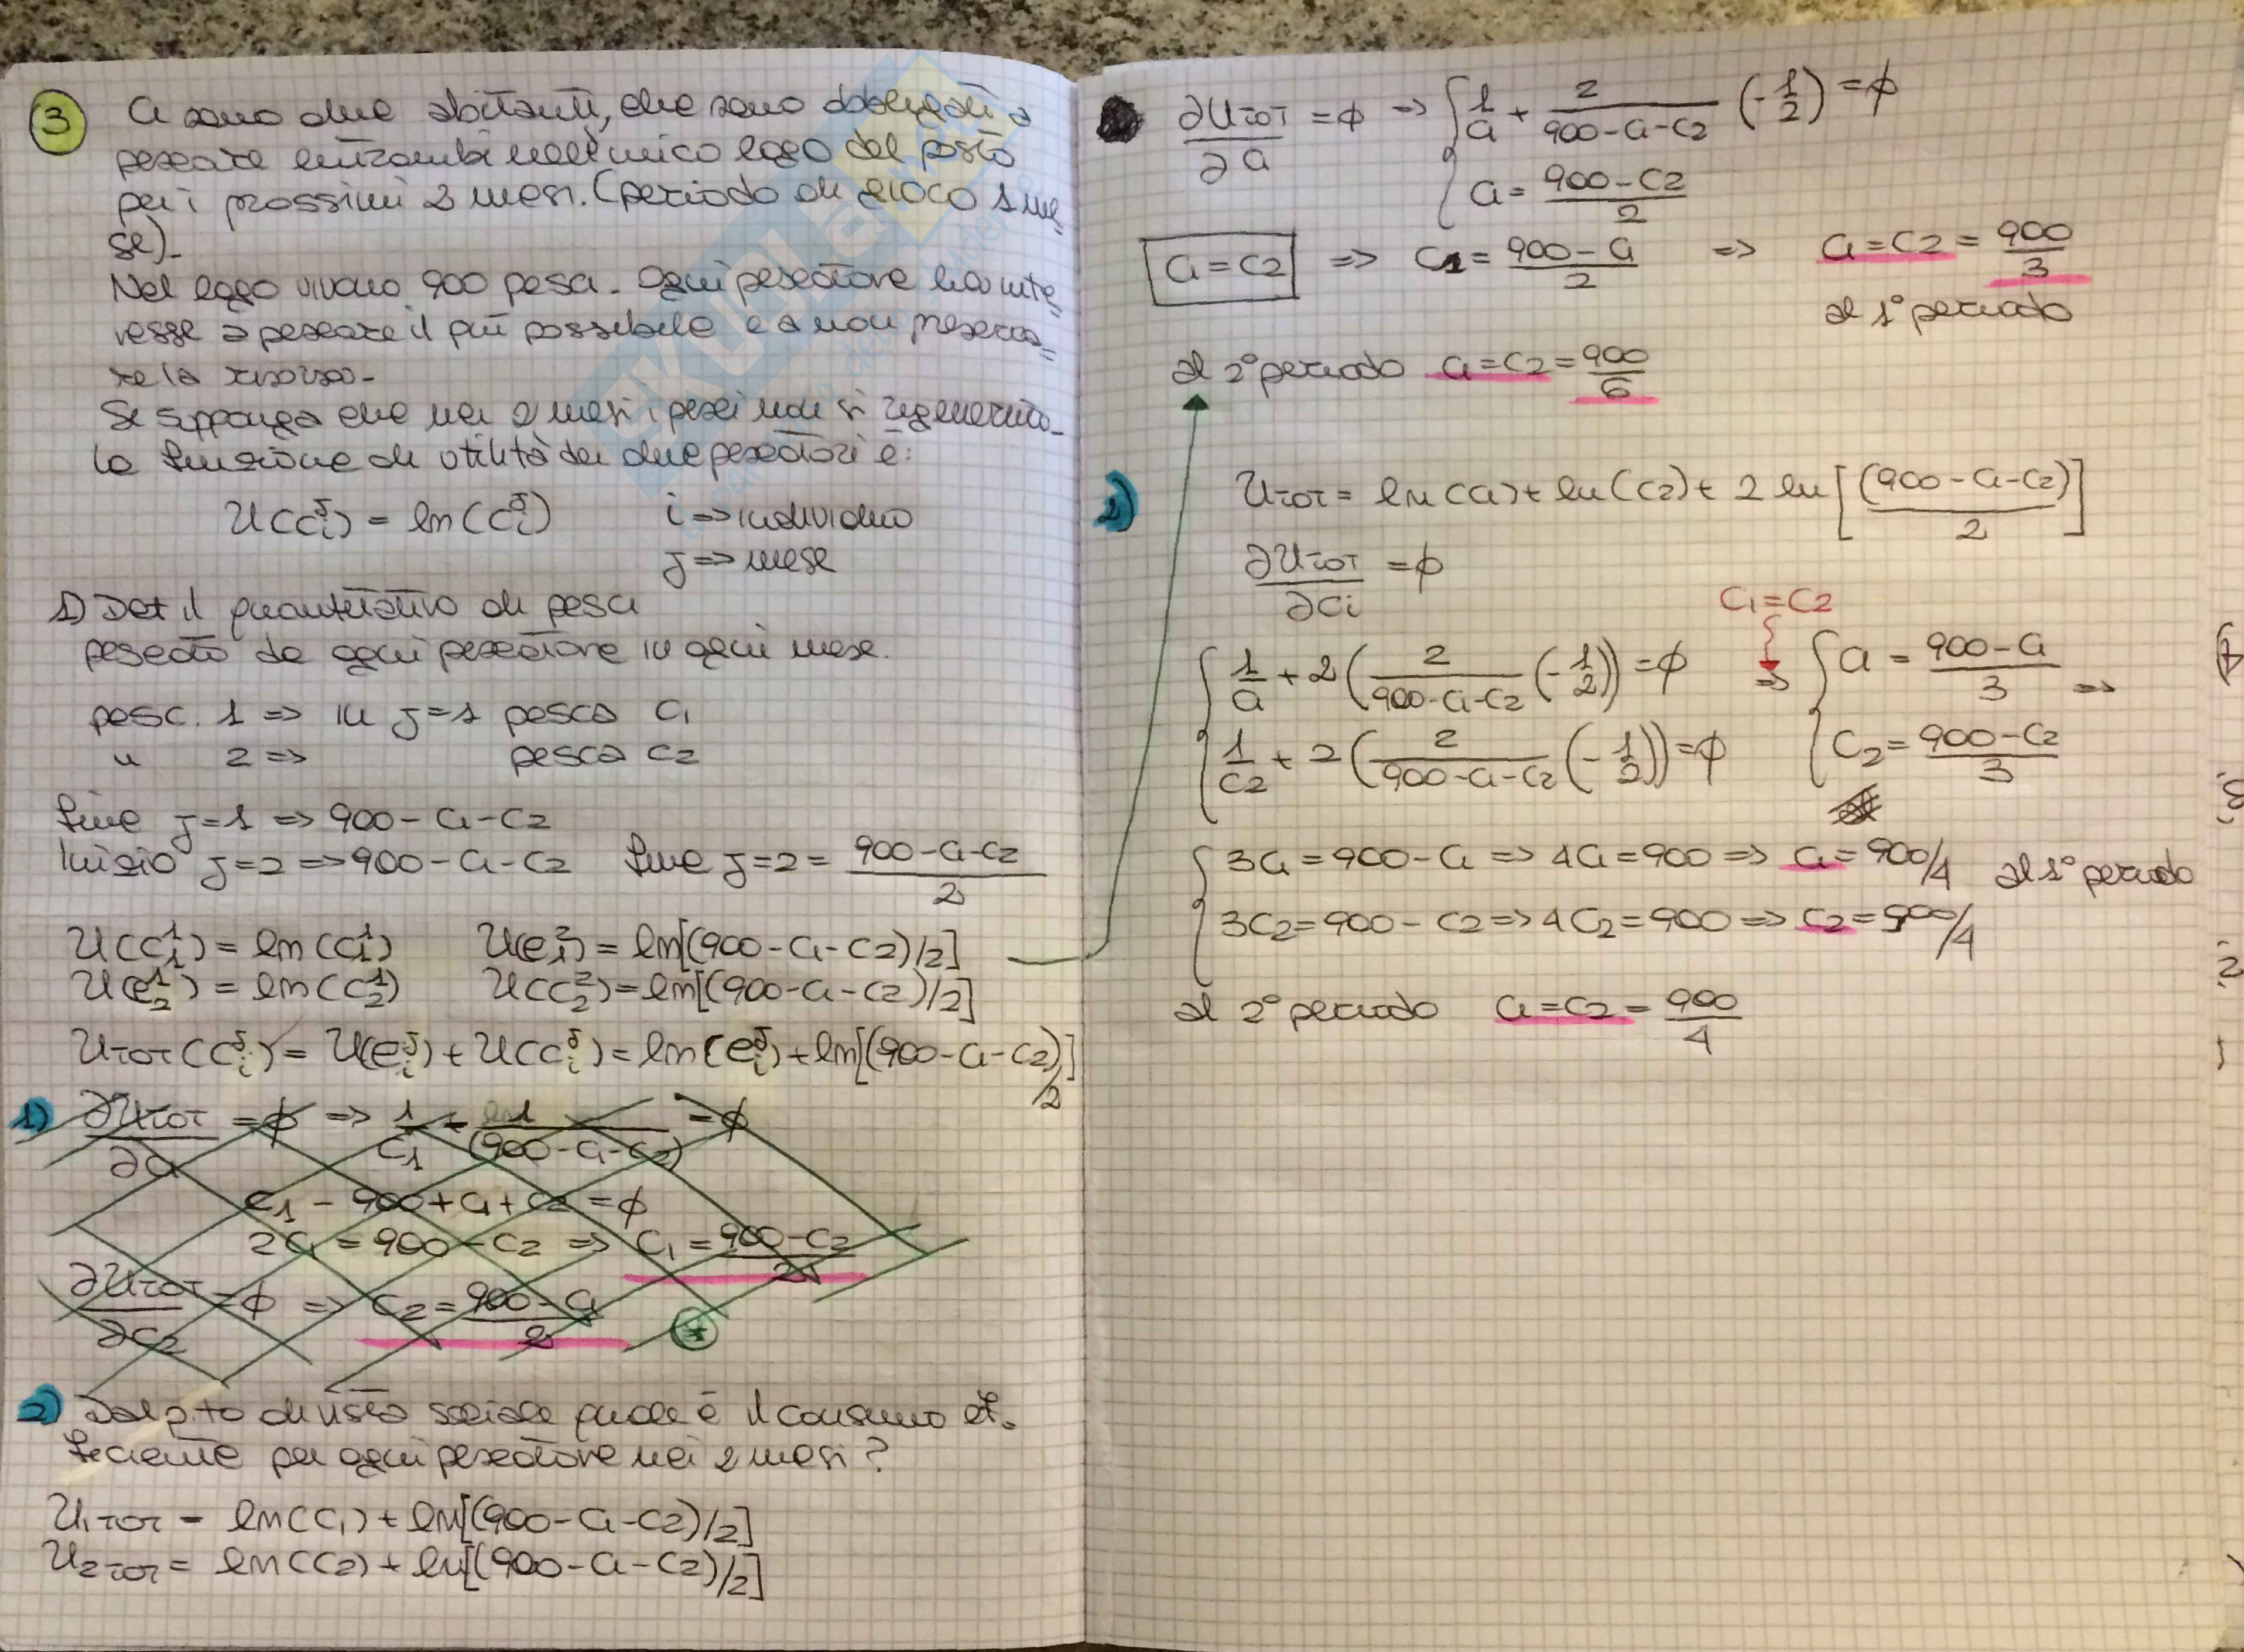 3
Ci sono due abitanti, che sono obbligati a
pescare entrambi nell'unico lago del posto
per i prossimi 2 mesi. (periodo di gioco 1 me=
se).
Nel lago vivono 900 pesci. Ogni pescatore ha inte=
resse a pescare il più possibile e a non preserva=
re la risorsa.
Si supponga che nei 2 mesi i pesci non si rigenerino.
La funzione di utilità dei due pescatori è:
U(c_i^j) = ln(c_i^j)   i => individuo
j => mese
1) Det il quantitativo di pesci
pescato da ogni pescatore in ogni mese.
pesc. 1 => in j=1 pesca c1
" 2 => pesca c2
fine j=1 => 900 - c1 - c2
Inizio j=2 => 900 - c1 - c2   fine j=2 = (900 - c1 - c2)/2
U(c_1^1) = ln(c_1^1)   U(c_1^2) = ln[(900 - c1 - c2)/2]
U(c_2^1) = ln(c_2^1)   U(c_2^2) = ln[(900 - c1 - c2)/2]
UTOT(c_i^j) = U(c_i^j) + U(c_i^j) = ln(c_i^j) + ln[(900 - c1 - c2)/2]
1) ∂UTOT/∂c1 = ϕ => 1/c1 - 1/(900 - c1 - c2) = ϕ
c1 - 900 + c1 + c2 = ϕ
2c1 = 900 - c2 => c1 = (900 - c2)/2
∂UTOT/∂c2 = ϕ => c2 = (900 - c1)/2
2) Dal p.to di vista sociale qual è il consumo ef=
ficiente per ogni pescatore nei 2 mesi?
U1TOT = ln(c1) + ln[(900 - c1 - c2)/2]
U2TOT = ln(c2) + ln[(900 - c1 - c2)/2]
∂UTOT/∂c1 = ϕ => { 1/c1 + 2/(900 - c1 - c2) (-1/2) = ϕ
c1 = (900 - c2)/2
c1 = c2 => c1 = (900 - c1)/2 => c1 = c2 = 900/3
al 1° periodo
al 2° periodo c1 = c2 = 900/6
2) UTOT = ln(c1) + ln(c2) + 2 ln[(900 - c1 - c2)/2]
∂UTOT/∂ci = ϕ
c1 = c2
{ 1/c1 + 2(2/(900 - c1 - c2) (-1/2)) = ϕ => { c1 = (900 - c1)/3 =>
1/c2 + 2(2/(900 - c1 - c2) (-1/2)) = ϕ   c2 = (900 - c2)/3
{ 3c1 = 900 - c1 => 4c1 = 900 => c1 = 900/4 al 1° periodo
3c2 = 900 - c2 => 4c2 = 900 => c2 = 900/4
al 2° periodo c1 = c2 = 900/4